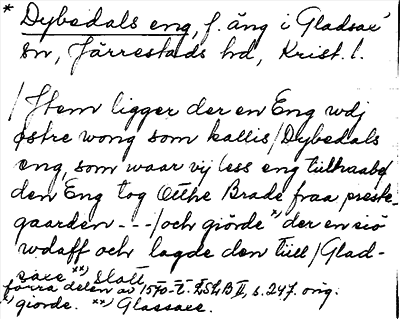 * Dybedals eng, f. äng i Gladsax'
sn, Järrestads hd, Krist. l.
/Item ligger der en Eng wdj
østre wong som kallis/Dybedals
eng, som waar vij less eng tülhaabe/
den Eng tog Otthe Brade fraa preste-
gaarden ---/och giörde *) der en siö
wdaff och lagde den tüll/Glad-
saxe **) Slott
förra delen av 1570-t. LSLB II, s. 247. orig.
*) giorde. **) Glassaxe.